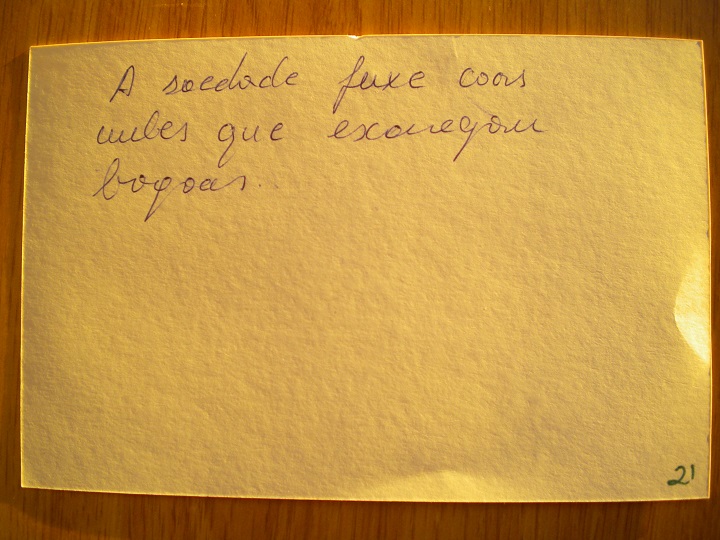 A soedade fuxe coas
nubes que exanegan
bagoas.
21